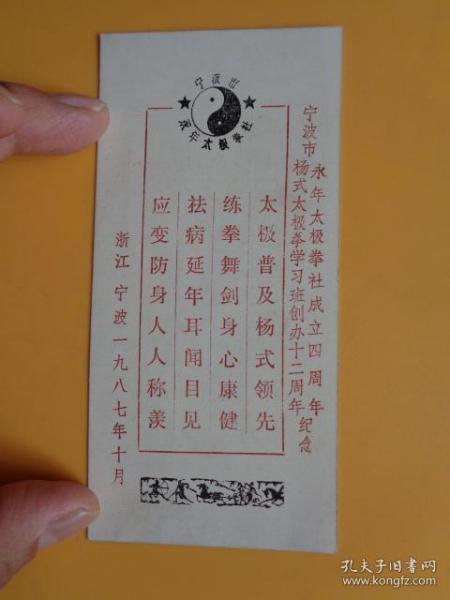 宁波市
永年太极拳社
宁波市永年太极拳社成立四周年
杨式太极拳学习班创办十二周年纪念
太极普及杨式领先
练拳舞剑身心康健
祛病延年耳闻目见
应变防身人人称羡
浙江宁波一九八七年十月
孔夫子旧书网
www.kongfz.com